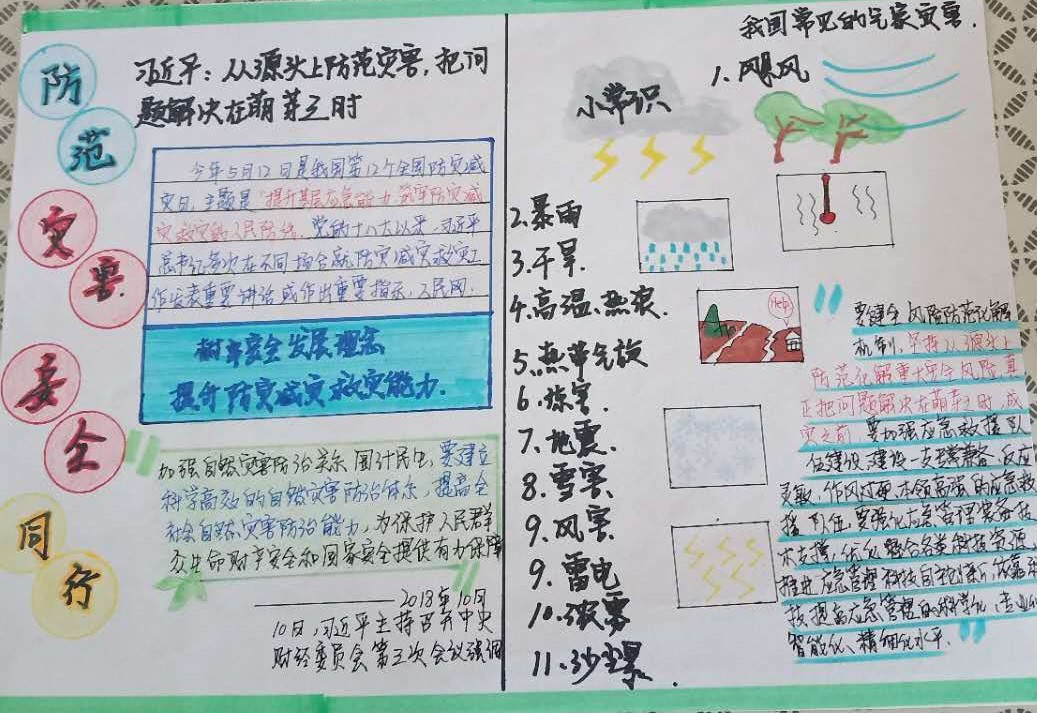 防
范
灾
害
安
全
同
行
习近平：从源头上防范灾害，把问
题解决在萌芽之时
今年5月12日是我国第12个全国防灾减
灾日，主题是“提升基层应急能力，筑牢防灾减
灾救灾的人民防线。党的十八大以来，习近平
总书记多次在不同场合就防灾减灾救灾工
作发表重要讲话或作出重要指示，人民网.
树牢安全发展理念
提升防灾减灾救灾能力.
加强自然灾害防治关系国计民生，要建立
科学高效的自然灾害防治体系，提高全
社会自然灾害防治能力，为保护人民群
众生命财产安全和国家安全提供有力保障
——2018年10月
10日，习近平主持召开中央
财经委员会第三次会议强调
我国常见的气象灾害.
小常识
1.风暴风
2.暴雨
3.干旱.
4.高温、热浪.
5.热带气旋
6.冻害.
7.地震.
8.雪害.
9.风害.
9.雷电
10.浓雾
11.沙尘暴.
Help
“要健全风险防范化解
机制，坚持从源头上
防范化解重大安全风险，真
正把问题解决在萌芽之时、成
灾之前 要加强应急救援队
伍建设，建设一支专常兼备、反应
灵敏、作风过硬、本领高强的应急救
援队伍 要强化应急管理装备技
术支撑，优化整合各类科技资源，
推进应急管理科技自主创新，依靠科
技提高应急管理的科学化、专业化
智能化、精细化水平.”